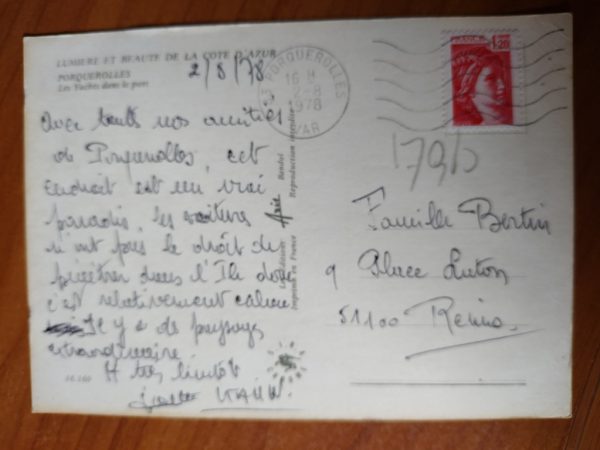 LUMIERE ET BEAUTE DE LA COTE D'AZUR
PORQUEROLLES
Les Yachts dans le port
2/8/78
83 PORQUEROLLES
16 H
2-8
1978
VAR
FRANCE
1,20
1795
Avec toutes nos amitiés
de Porquerolles, cet
endroit est un vrai
paradis, les voitures
n'ont pas le droit de
pénétrer dans l'Ile donc
c'est relativement calme
Il y a de paysages
extraordinaire
A très bientôt
Famille Bertin
9 Place Luton
51100 Reims.
Bandol
Reproduction interdite
Imprimé en France